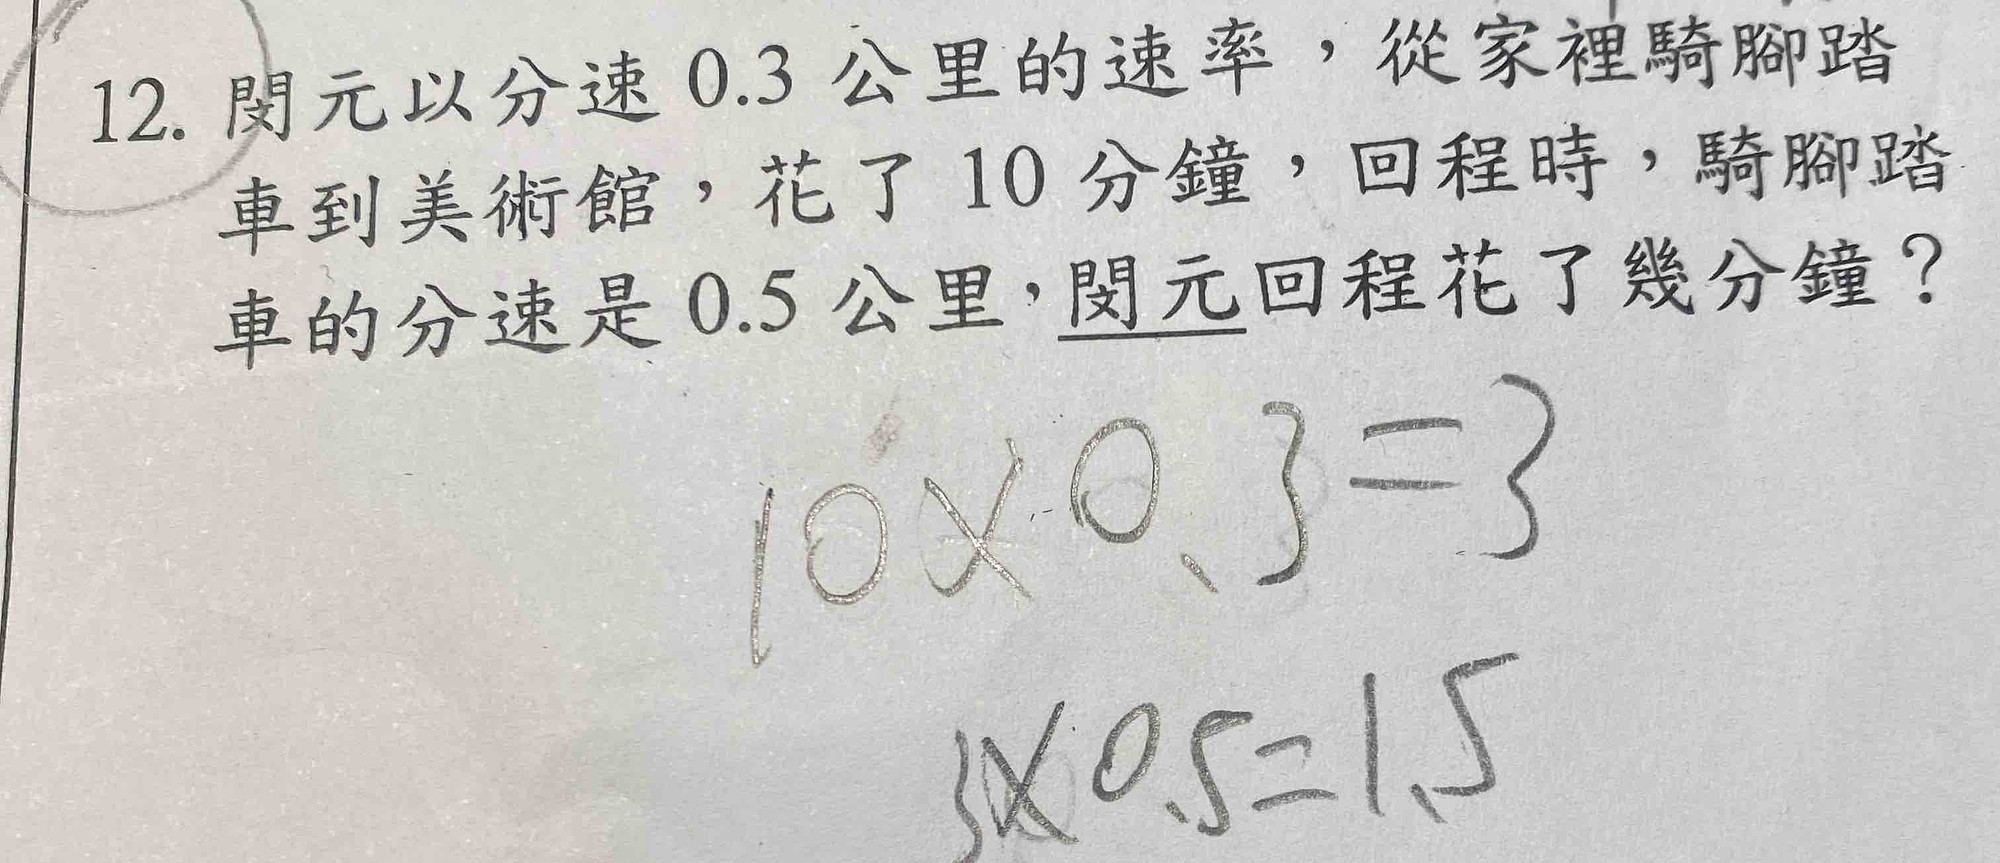 12. 閔元以分速 0.3 公里的速率，從家裡騎腳踏
車到美術館，花了 10 分鐘，回程時，騎腳踏
車的分速是 0.5 公里，閔元回程花了幾分鐘？
10×0.3=3
3×0.5=1.5